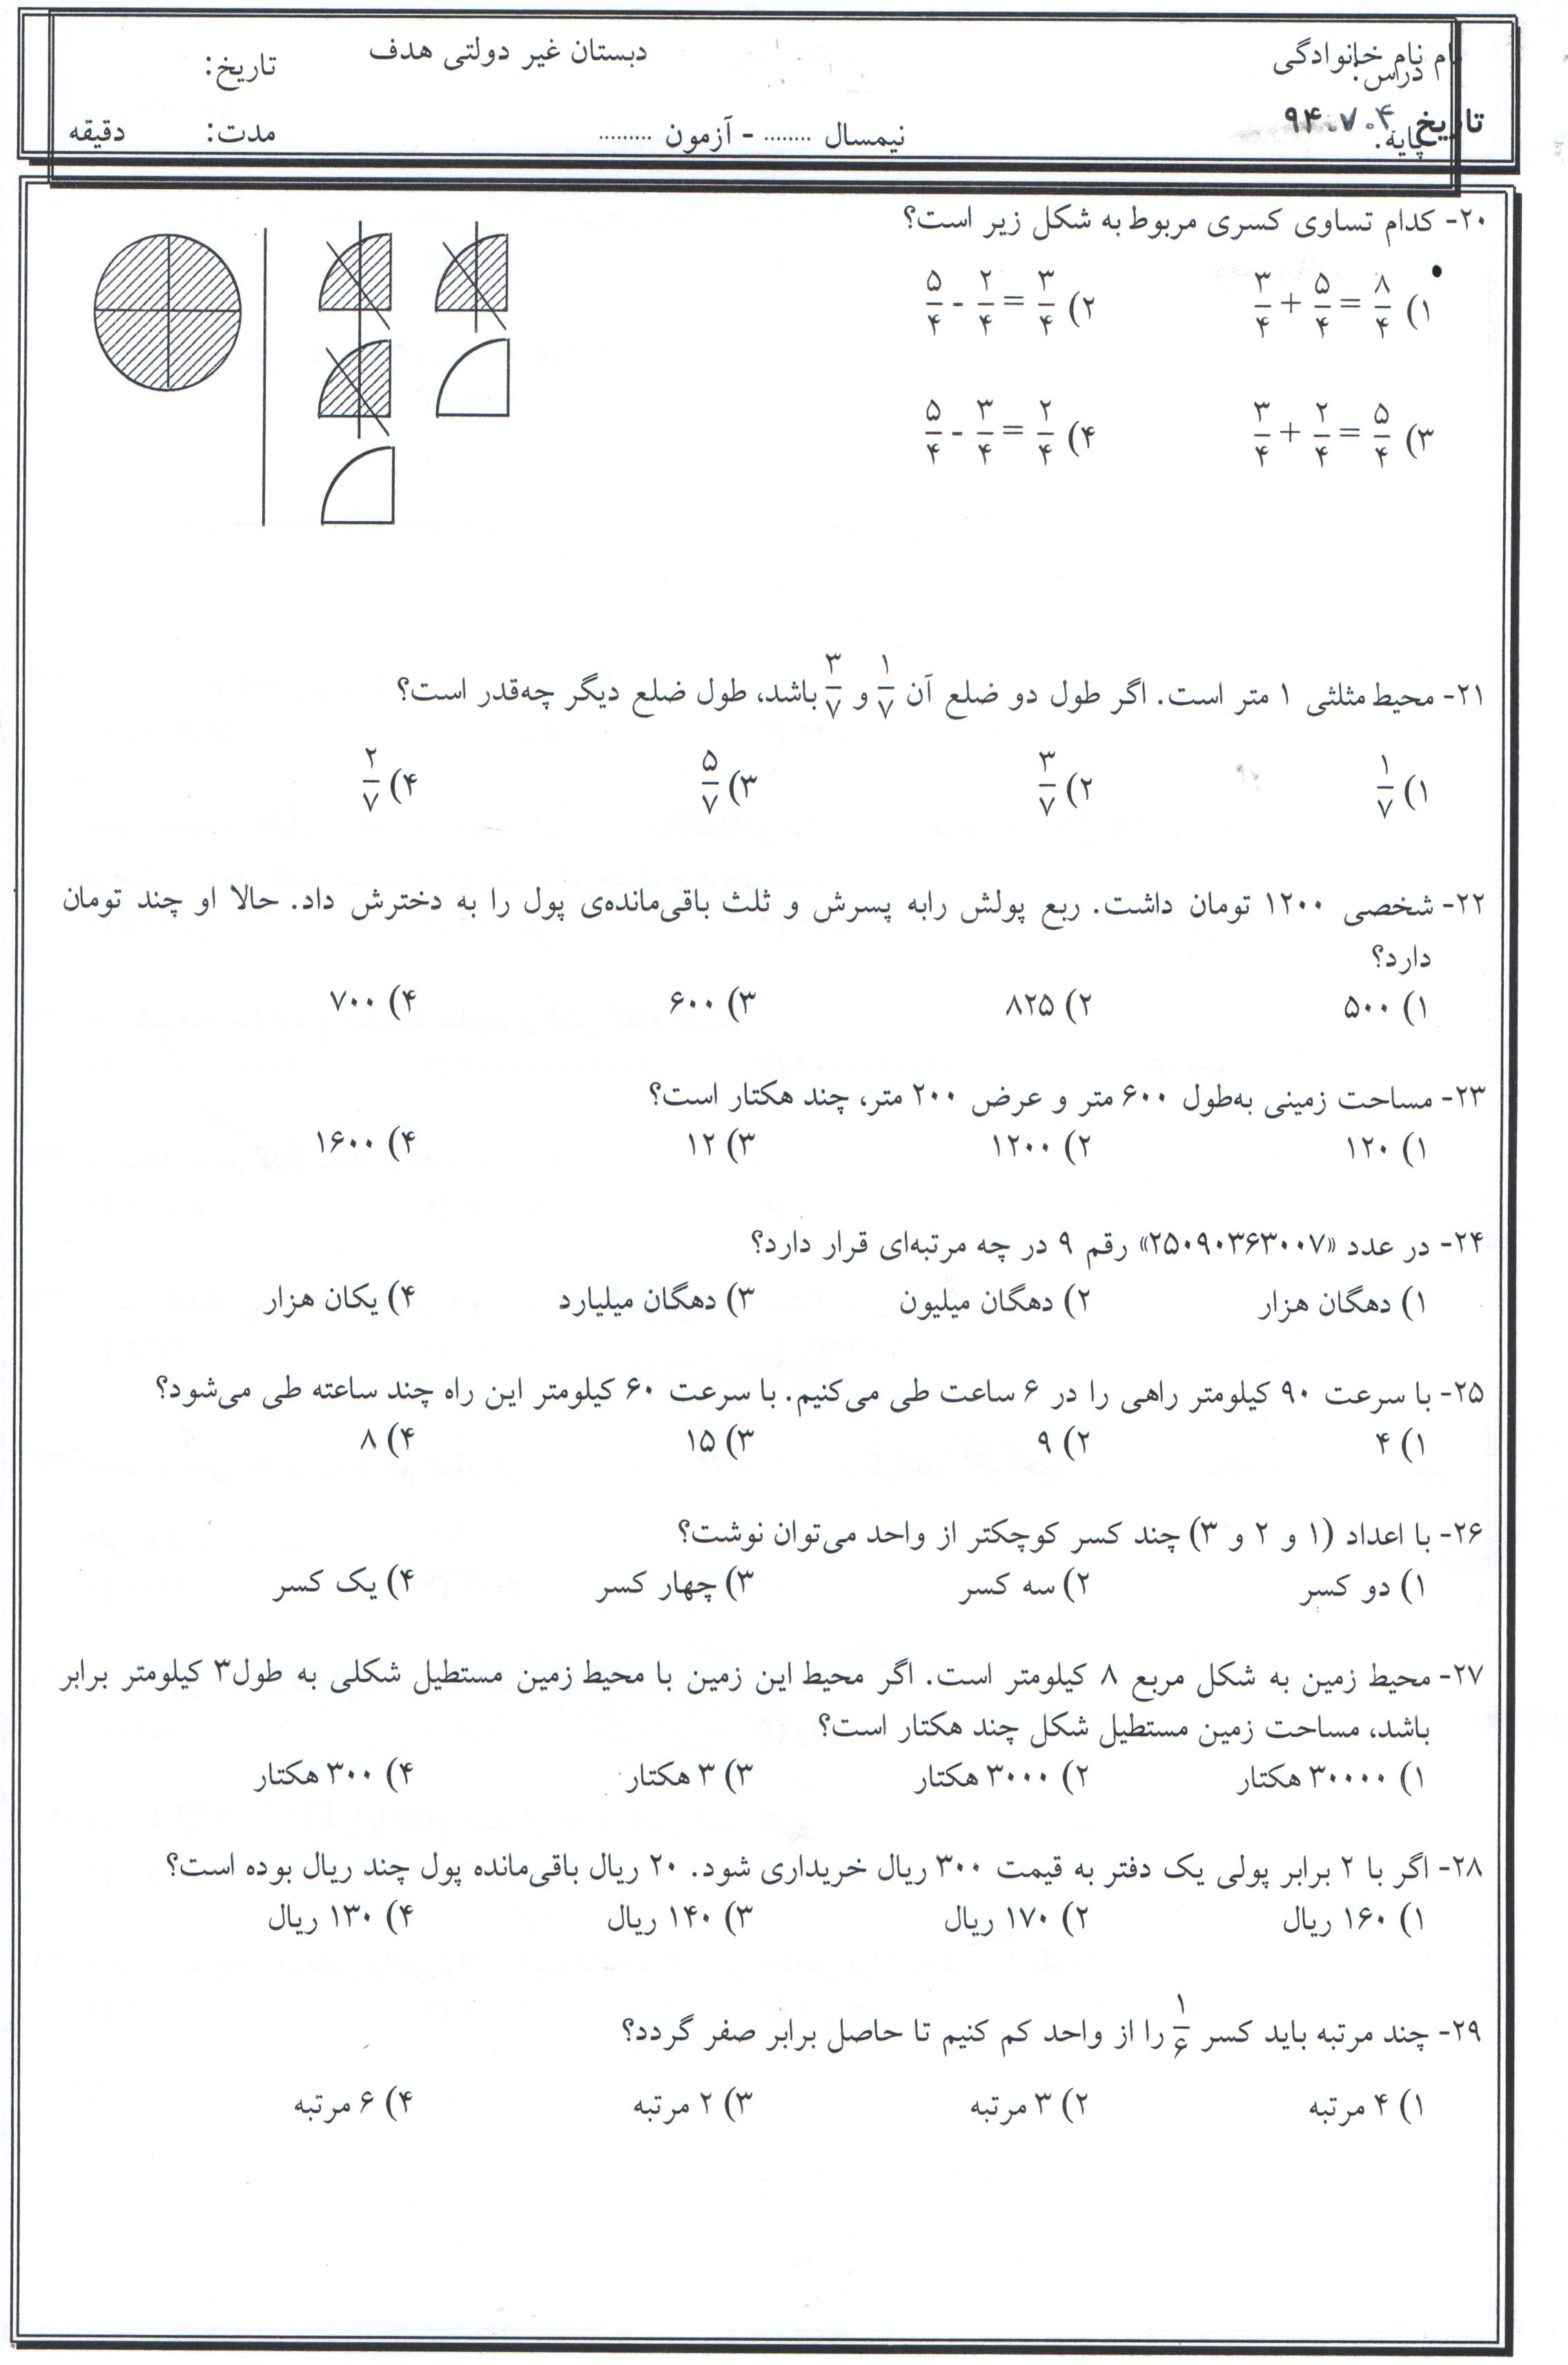 نام نام خانوادگی
دبستان غیر دولتی هدف
تاریخ:
درس:
تاریخ ۹۴.۷.۴
پایه:
نیمسال ........ - آزمون .........
مدت: دقیقه
۲۰- کدام تساوی کسری مربوط به شکل زیر است؟
۱) ۳/۴ + ۵/۴ = ۸/۴ ۲) ۵/۴ - ۲/۴ = ۳/۴
۳) ۳/۴ + ۲/۴ = ۵/۴ ۴) ۵/۴ - ۳/۴ = ۲/۴
۲۱- محیط مثلثی ۱ متر است. اگر طول دو ضلع آن ۱/۷ و ۳/۷ باشد، طول ضلع دیگر چه‌قدر است؟
۱) ۱/۷ ۲) ۳/۷ ۳) ۵/۷ ۴) ۲/۷
۲۲- شخصی ۱۲۰۰ تومان داشت. ربع پولش رابه پسرش و ثلث باقی‌مانده‌ی پول را به دخترش داد. حالا او چند تومان
دارد؟
۱) ۵۰۰ ۲) ۸۲۵ ۳) ۶۰۰ ۴) ۷۰۰
۲۳- مساحت زمینی به‌طول ۶۰۰ متر و عرض ۲۰۰ متر، چند هکتار است؟
۱) ۱۲۰ ۲) ۱۲۰۰ ۳) ۱۲ ۴) ۱۶۰۰
۲۴- در عدد «۲۵۰۹۰۳۶۳۰۰۷» رقم ۹ در چه مرتبه‌ای قرار دارد؟
۱) دهگان هزار ۲) دهگان میلیون ۳) دهگان میلیارد ۴) یکان هزار
۲۵- با سرعت ۹۰ کیلومتر راهی را در ۶ ساعت طی می‌کنیم. با سرعت ۶۰ کیلومتر این راه چند ساعته طی می‌شود؟
۱) ۴ ۲) ۹ ۳) ۱۵ ۴) ۸
۲۶- با اعداد (۱ و ۲ و ۳) چند کسر کوچکتر از واحد می‌توان نوشت؟
۱) دو کسر ۲) سه کسر ۳) چهار کسر ۴) یک کسر
۲۷- محیط زمین به شکل مربع ۸ کیلومتر است. اگر محیط این زمین با محیط زمین مستطیل شکلی به طول۳ کیلومتر برابر
باشد، مساحت زمین مستطیل شکل چند هکتار است؟
۱) ۳۰۰۰۰ هکتار ۲) ۳۰۰۰ هکتار ۳) ۳ هکتار ۴) ۳۰۰ هکتار
۲۸- اگر با ۲ برابر پولی یک دفتر به قیمت ۳۰۰ ریال خریداری شود. ۲۰ ریال باقی‌مانده پول چند ریال بوده است؟
۱) ۱۶۰ ریال ۲) ۱۷۰ ریال ۳) ۱۴۰ ریال ۴) ۱۳۰ ریال
۲۹- چند مرتبه باید کسر ۱/۶ را از واحد کم کنیم تا حاصل برابر صفر گردد؟
۱) ۴ مرتبه ۲) ۳ مرتبه ۳) ۲ مرتبه ۴) ۶ مرتبه